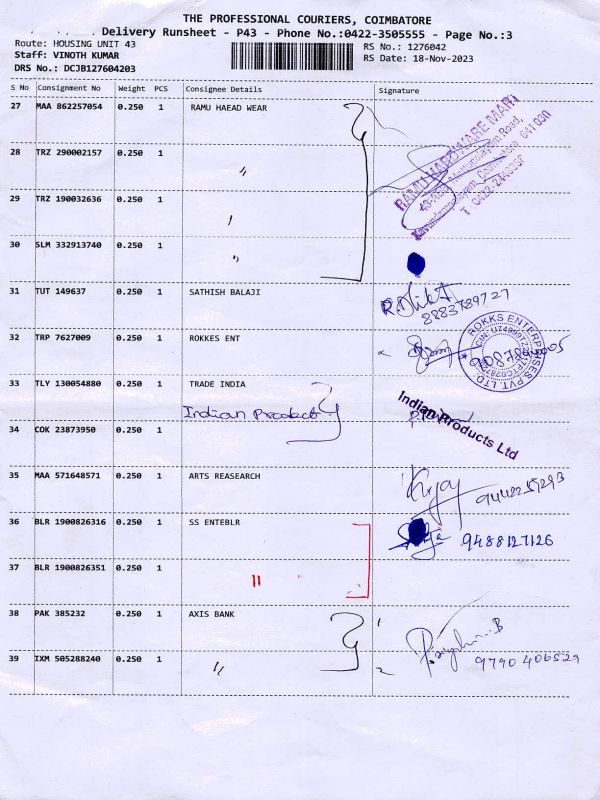 THE PROFESSIONAL COURIERS, COIMBATORE
Delivery Runsheet - P43 - Phone No.:0422-3505555 - Page No.:3
Route: HOUSING UNIT 43
RS No.: 1276042
Staff: VINOTH KUMAR
RS Date: 18-Nov-2023
DRS No.: DCJB127604203
S No Consignment No Weight PCS Consignee Details Signature
27 MAA 862257054 0.250 1 RAMU HAEAD WEAR
RAMU HARDWARE MART
28 TRZ 290002157 0.250 1 "
29 TRZ 190032636 0.250 1 "
30 SLM 332913740 0.250 1 "
31 TUT 149637 0.250 1 SATHISH BALAJI
8883789727
32 TRP 7627009 0.250 1 ROKKES ENT
ROKKS ENTERPRISES PVT. LTD.
33 TLY 130054880 0.250 1 TRADE INDIA
Indian Product
Indian Products Ltd
34 COK 23873950 0.250 1
35 MAA 571648571 0.250 1 ARTS REASEARCH
36 BLR 1900826316 0.250 1 SS ENTEBLR
9488127126
37 BLR 1900826351 0.250 1 "
38 PAK 385232 0.250 1 AXIS BANK
39 IXM 505288240 0.250 1 "
9790406529